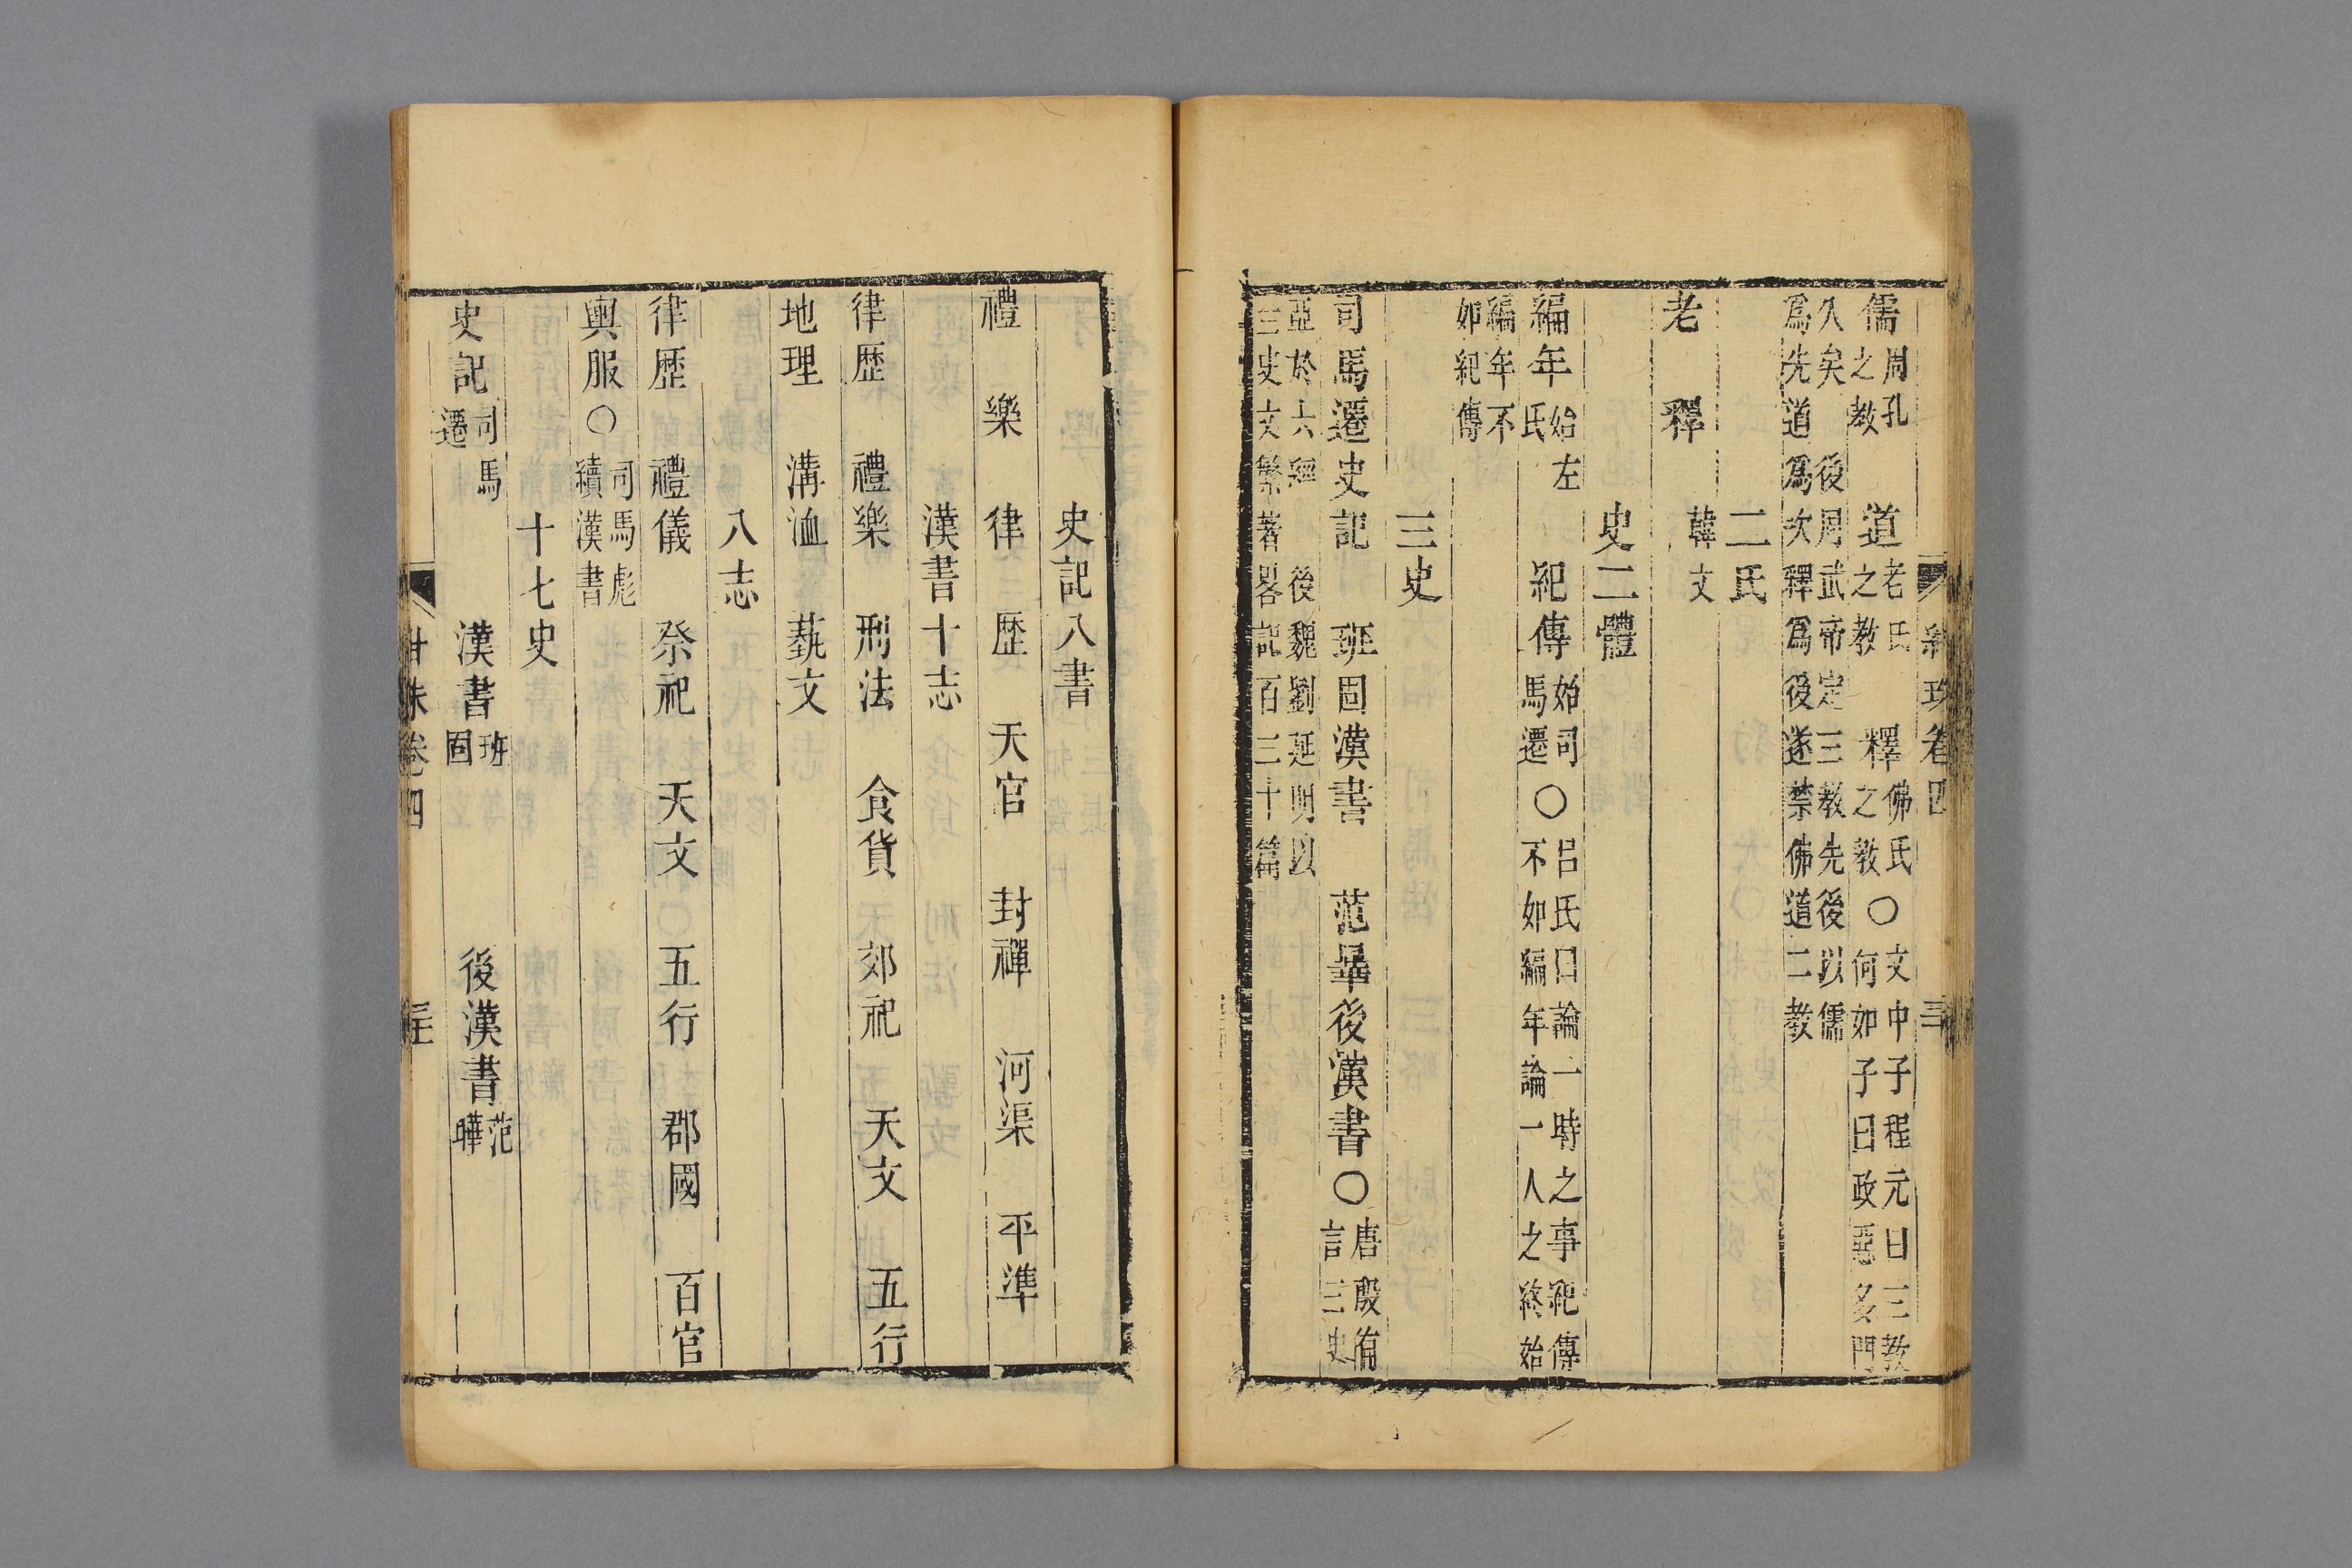 儒周孔之教　道老氏之教　釋佛氏之教○文中子程元曰三教何如子曰政惡多門
久矣後周武帝定三教先後以儒爲先道爲次釋爲後遂禁佛道二教
二氏
老　釋　韓文
史二體
編年始左氏　紀傳始司馬遷○呂氏曰論一時之事紀傳不如編年論一人之終始
編年不如紀傳
三史
司馬遷史記　班固漢書　范曅後漢書○唐殷侑言三史
亞於六經　後魏劉延明以三史文繁著畧記百三十篇
史記八書
禮　樂　律　歷　天官　封禪　河渠　平準
漢書十志
律歷　禮樂　刑法　食貨　郊祀　天文　五行
地理　溝洫　藝文
八志
律歷　禮儀　祭祀　天文　五行　郡國　百官
輿服○司馬彪續漢書
十七史
史記司馬遷　漢書班固　後漢書范曄
卷四